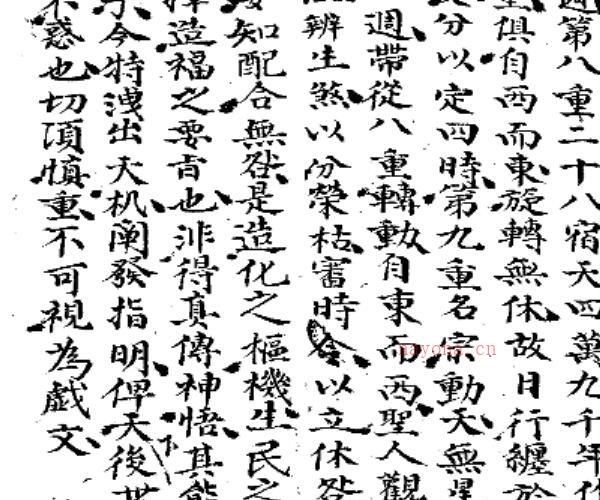 第八重二十八宿天四萬九千年
俱自西而東旋轉無休故日行纏於
分以定四時第九重名宗動天無星
週帶從八重轉動自東而西聖人觀
辨生煞以分榮枯審時令以立休咎
知配合無咎是造化之樞機生民之
造福之要旨也非得真傳神悟其能
今特洩出天机阐發指明俾天後世
下
不惑也切須慎重不可視為戲文
nayona.cn